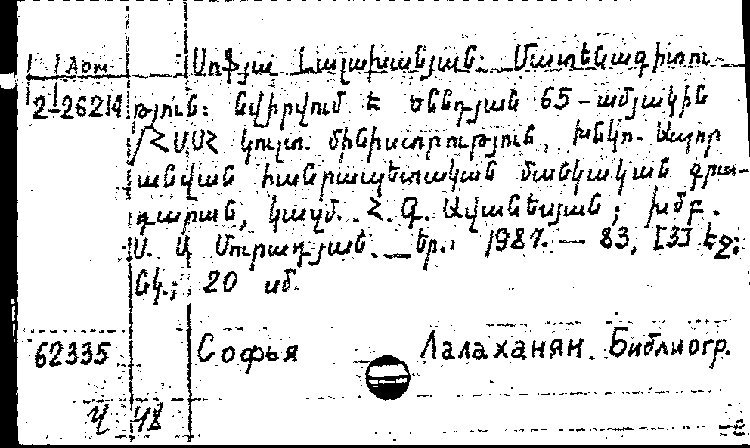 Սոֆյա Լալախանյան: Մատենագիտու-
2-26214 թյուն: Նվիրվում է ծննդյան 65-ամյակին
/ՀՍՍՀ կուլտ. մինիստրություն, Խնկո-Ապոր
անվան հանրապետական մանկական գրա-
դարան, կազմ. Հ. Գ. Ավանեսյան; խմբ.
Ս. Ա. Մուրադյան._Եր.: 1987. — 83, [3] էջ:
նկ.; 20 սմ.
62335 Софья Лалаханян. Библиогр.
Ч 48